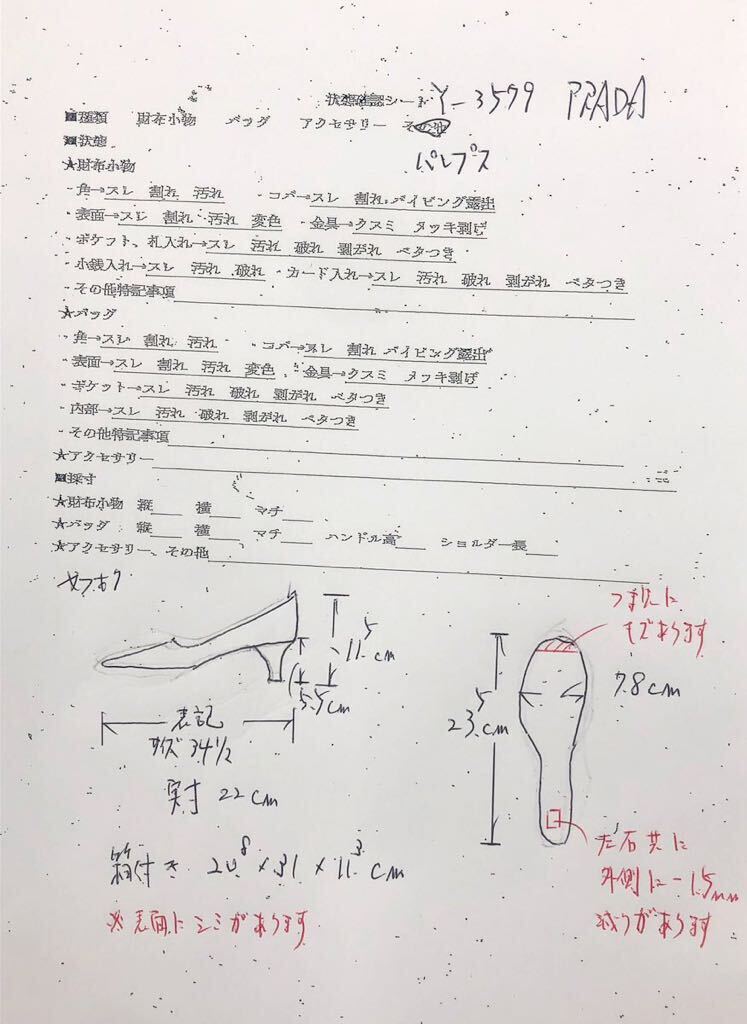 状態確認シート Y-3579 PRADA
■種類 財布小物 バッグ アクセサリー その他
■状態 パンプス
★財布小物
・角→スレ 割れ 汚れ ・コバ→スレ 割れ パイピング露出
・表面→スレ 割れ 汚れ 変色 ・金具→クスミ メッキ剥げ
・ポケット、札入れ→スレ 汚れ 破れ 剥がれ ベタつき
・小銭入れ→スレ 汚れ 破れ ・カード入れ→スレ 汚れ 破れ 剥がれ ベタつき
・その他特記事項
★バッグ
・角→スレ 割れ 汚れ ・コバ→スレ 割れ パイピング露出
・表面→スレ 割れ 汚れ 変色 ・金具→クスミ メッキ剥げ
・ポケット→スレ 汚れ 破れ 剥がれ ベタつき
・内部→スレ 汚れ 破れ 剥がれ ベタつき
・その他特記事項
★アクセサリー
■採寸
★財布小物 縦 横 マチ
★バッグ 縦 横 マチ ハンドル高 ショルダー長
★アクセサリー、その他
ヤフオク
11.5cm
5.5cm
表記
サイズ 34 1/2
実寸 22cm
箱付き 20.8×31×11.3cm
※表面にシミがあります
キズあります
7.8cm
23.5cm
左右共に
外側に-1.5mm
減りがあります